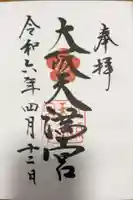 奉拝
大阪天満宮
令和六年四月十二日